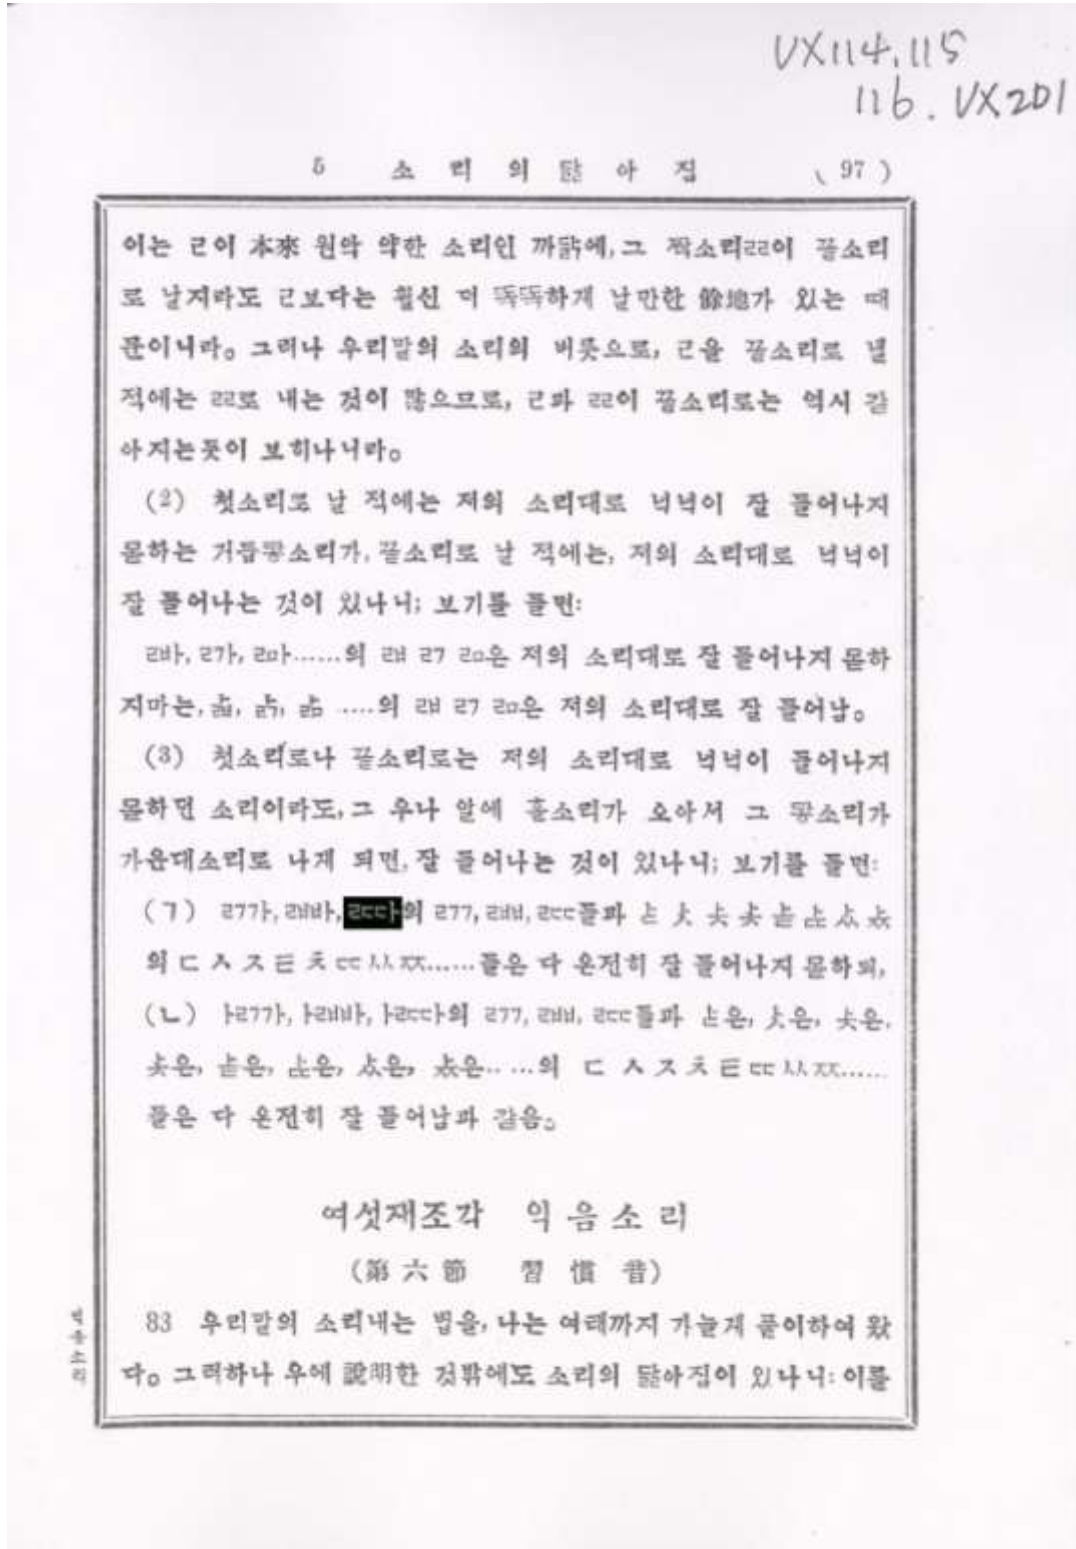 VX114.115
116. VX201
5 소리의 닮아짐 (97)
이는 ㄹ이 本來 원악 약한 소리인 까닭에, 그 짝소리ㄹㄹ이 끝소리
로 날지라도 ㄹ보다는 훨신 더 똑똑하게 날만한 餘地가 있는 때
문이니라。 그러나 우리말의 소리의 버릇으로, ㄹ을 끝소리로 낼
적에는 ㄹㄹ로 내는 것이 많으므로, ㄹ과 ㄹㄹ이 끝소리로는 역시 같
아지는듯이 보히나니라。
(2) 첫소리로 날 적에는 저의 소리대로 넉넉이 잘 들어나지
몯하는 거듭닿소리가, 끝소리로 날 적에는, 저의 소리대로 넉넉이
잘 들어나는 것이 있나니; 보기를 들면:
ᄙᅡ
의 ㄼ ㄺ ㄻ은 저의 소리대로 잘 들어나지 몯하
지마는, ......의 ㄼ ㄺ ㄻ은 저의 소리대로 잘 들어남。
(3) 첫소리로나 끝소리로는 저의 소리대로 넉넉이 들어나지
몯하던 소리이라도, 그 우나 알에 홀소리가 오아서 그 닿소리가
가운대소리로 나게 되면, 잘 들어나는 것이 있나니; 보기를 들면:
(ㄱ) ㄹㄱㄱㅏ, ㄹㅂㅂㅏ, ㄹㄷㄷㅏ의 ㄹㄱㄱ, ㄹㅂㅂ, ㄹㄷㄷ들과
의 ㄷ ㅅ ㅈ ㅌ ㅊ ㄸ ㅆ ㅉ......들은 다 온전히 잘 들어나지 몯하되,
(ㄴ) ㅏㄹㄱㄱㅏ, ㅏㄹㅂㅂㅏ, ㅏㄹㄷㄷㅏ의 ㄹㄱㄱ, ㄹㅂㅂ, ㄹㄷㄷ들과
......의 ㄷ ㅅ ㅈ ㅊ ㅌ ㄸ ㅆ ㅉ......
들은 다 온전히 잘 들어남과 같음。
여섯재조각 익음소리
(第六節 習慣音)
83 우리말의 소리내는 법을, 나는 여태까지 가늘게 풀이하여 왔
다。 그러하나 우에 說明한 것밖에도 소리의 닮아짐이 있나니: 이를
익음소리